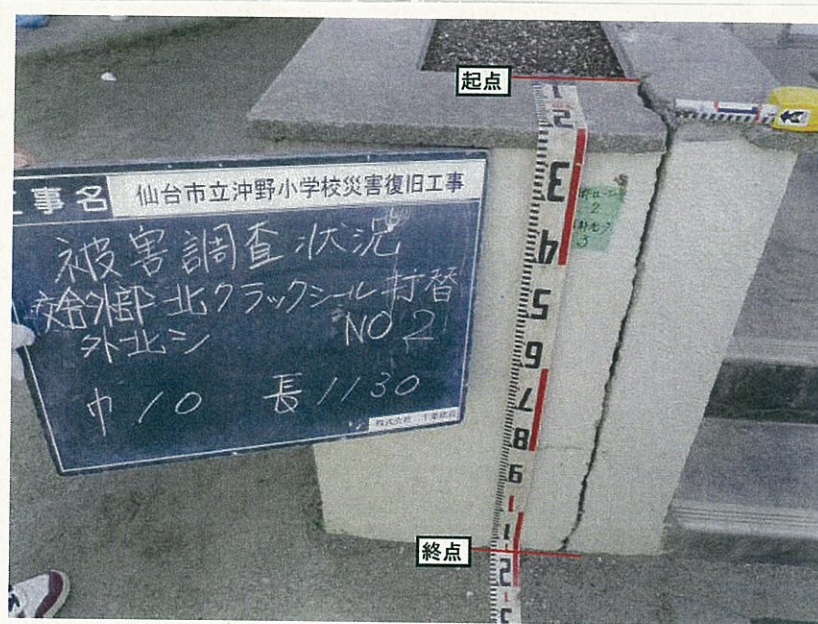 起点
工事名 仙台市立沖野小学校災害復旧工事
被害調査状況
校舎外部 北クラックシール打替
外北シ NO 2
巾10 長1130
1
2
3
4
5
6
7
8
9
1
1
2
終点